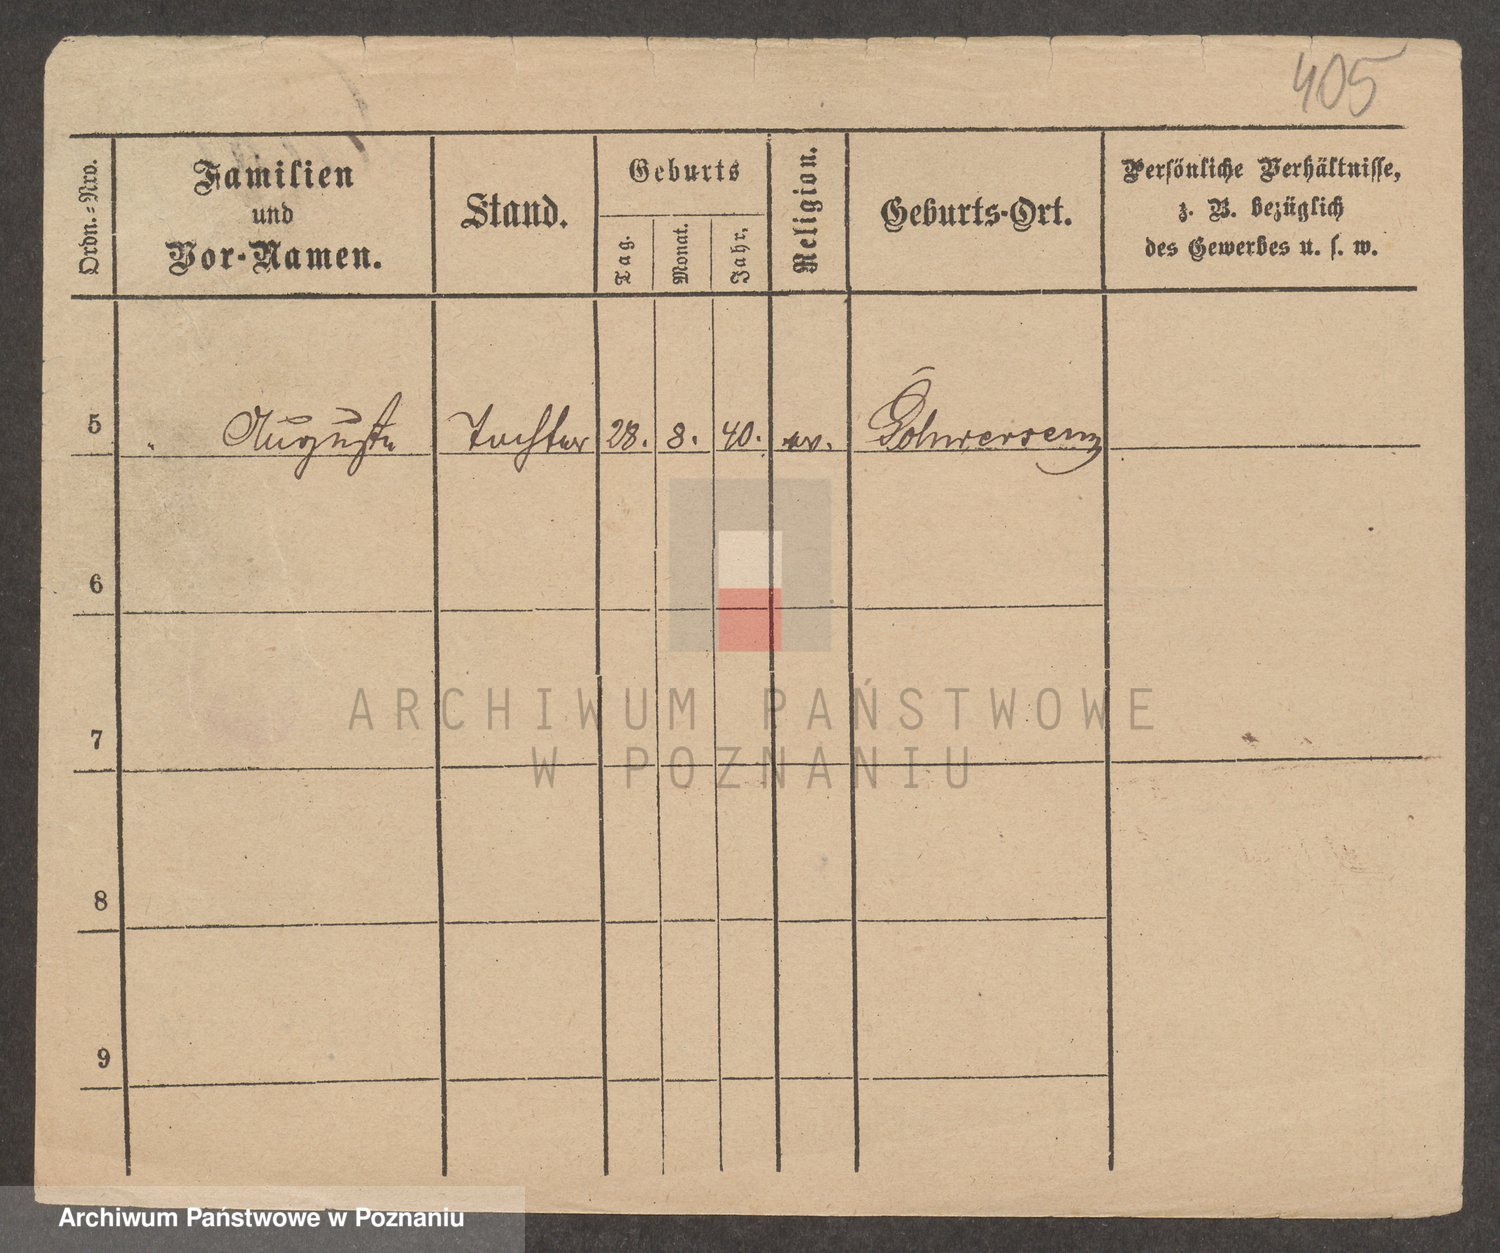 405
Ordn.-Nro.
Familien
und
Vor-Namen.
Stand.
Geburts
Tag.
Monat.
Jahr.
Religion.
Geburts-Ort.
Persönliche Verhältnisse,
z. B. bezüglich
des Gewerbes u. s. w.
5 " Auguste Tochter 28. 8. 40. ev.
6
7
8
9
ARCHIWUM PAŃSTWOWE
W POZNANIU
Archiwum Państwowe w Poznaniu